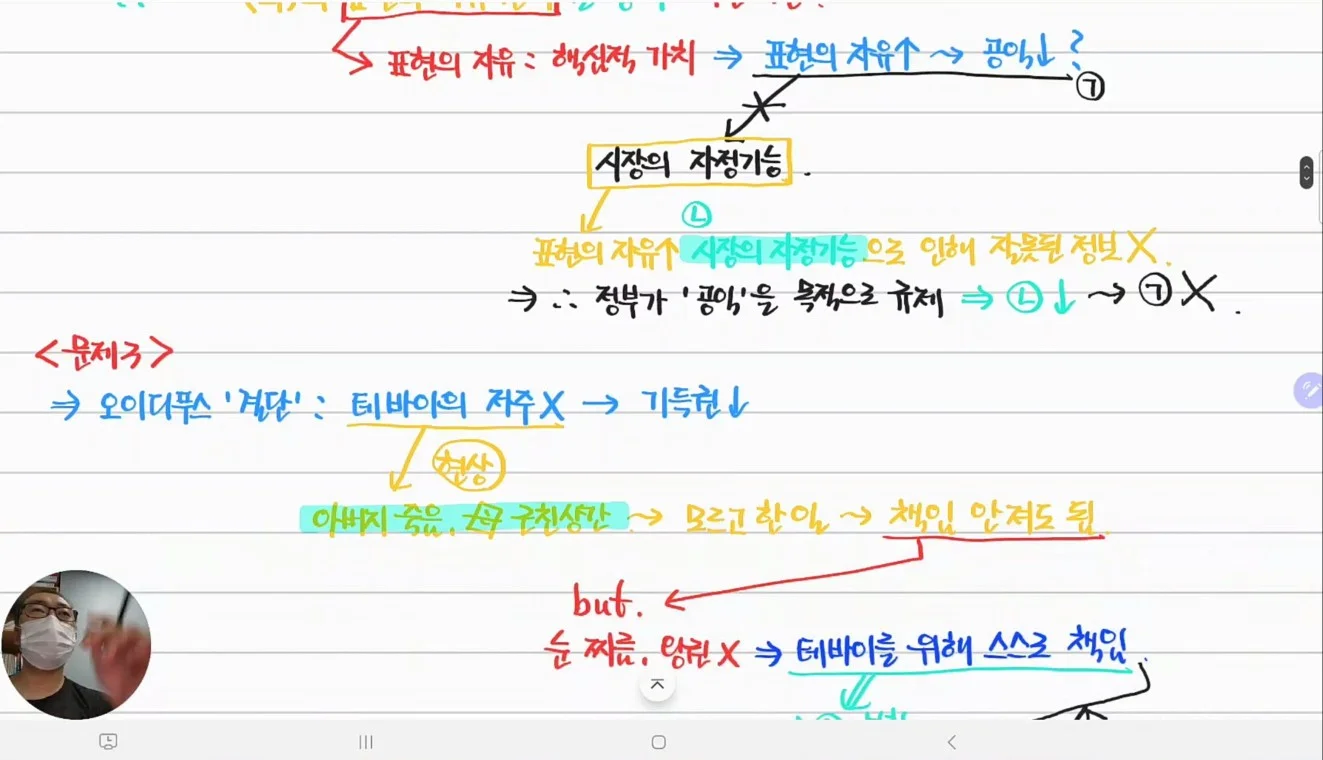 표현의 자유 : 핵심적 가치 ⇒ 표현의 자유↑ ⤳ 공익↓ ?
㉠
시장의 자정기능 .
㉡
표현의 자유↑ 시장의 자정기능으로 인해 잘못된 정보 X .
⇒ ∴ 정부가 '공익'을 목적으로 규제 ⇒ ㉡↓ ⤳ ㉠ X .
<문제3>
⇒ 오이디푸스 '결단' : 테바이의 저주 X → 기득권↓
현상
아버지 죽음, 근친상간 ⤳ 모르고 한 일 ⤳ 책임 안 져도 됨.
but.
눈 찌름, 왕권 X ⇒ 테바이를 위해 스스로 책임.